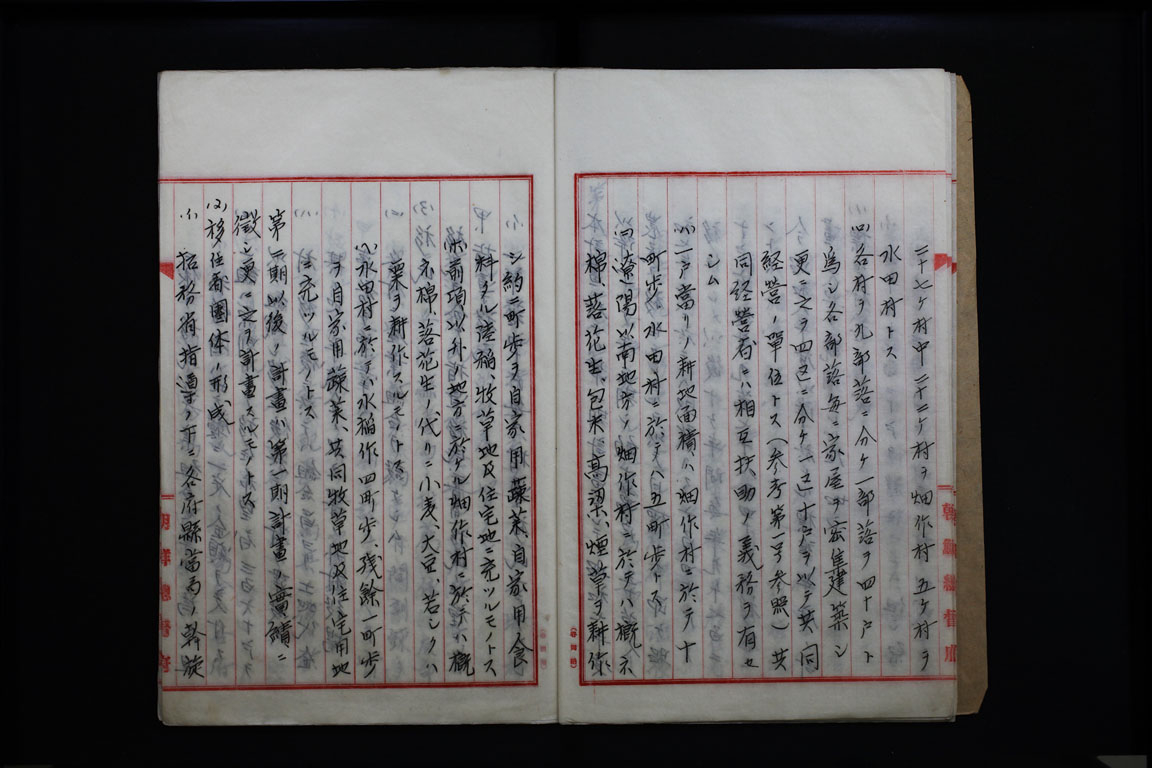 二十七ケ村中二十二ケ村ヲ畑作村五ケ村ヲ
水田村トス
(ロ)各村ヲ九部落ニ分ケ一部落ヲ四十戸ト
為シ各部落毎ニ家屋ヲ密集建築シ
更ニ之ヲ四区ニ分ケ一区十戸ヲ以テ共同
経営ノ單位トス(参考第一号参照)共
同経営者ニハ相互扶助ノ義務ヲ有セ
シム
(ハ)一戸當リノ耕地面積ハ畑作村ニ於テ十
町歩水田村ニ於テハ五町歩トス
(ニ)遼陽以南地方ノ畑作村ニ於テハ概ネ
棉、落花生、包米、高梁、煙草ヲ耕作
シ約二町歩ヲ自家用蔬菜、自家用食
料タル陸稲、牧草地及住宅地ニ充ツルモノトス
(ホ)前項以外ノ地方ニ於ケル畑作村ニ於テハ概
ネ棉、落花生ノ代リニ小麦、大豆、若シクハ
粟ヲ耕作スルモノトス
(ヘ)水田村ニ於テハ水稲作四町歩残餘一町歩
ヲ自家用蔬菜、共同牧草地及住宅用地
ニ充ツルモノトス
第二期以後ノ計畫ハ第一期計畫ノ實績ニ
徴シ更ニ之ヲ計畫スルモノトス
(2)移住者團体ノ形成
(イ)拓務省指導ノ下ニ各府縣當局ノ斡旋
朝鮮總督府
朝鮮總督府